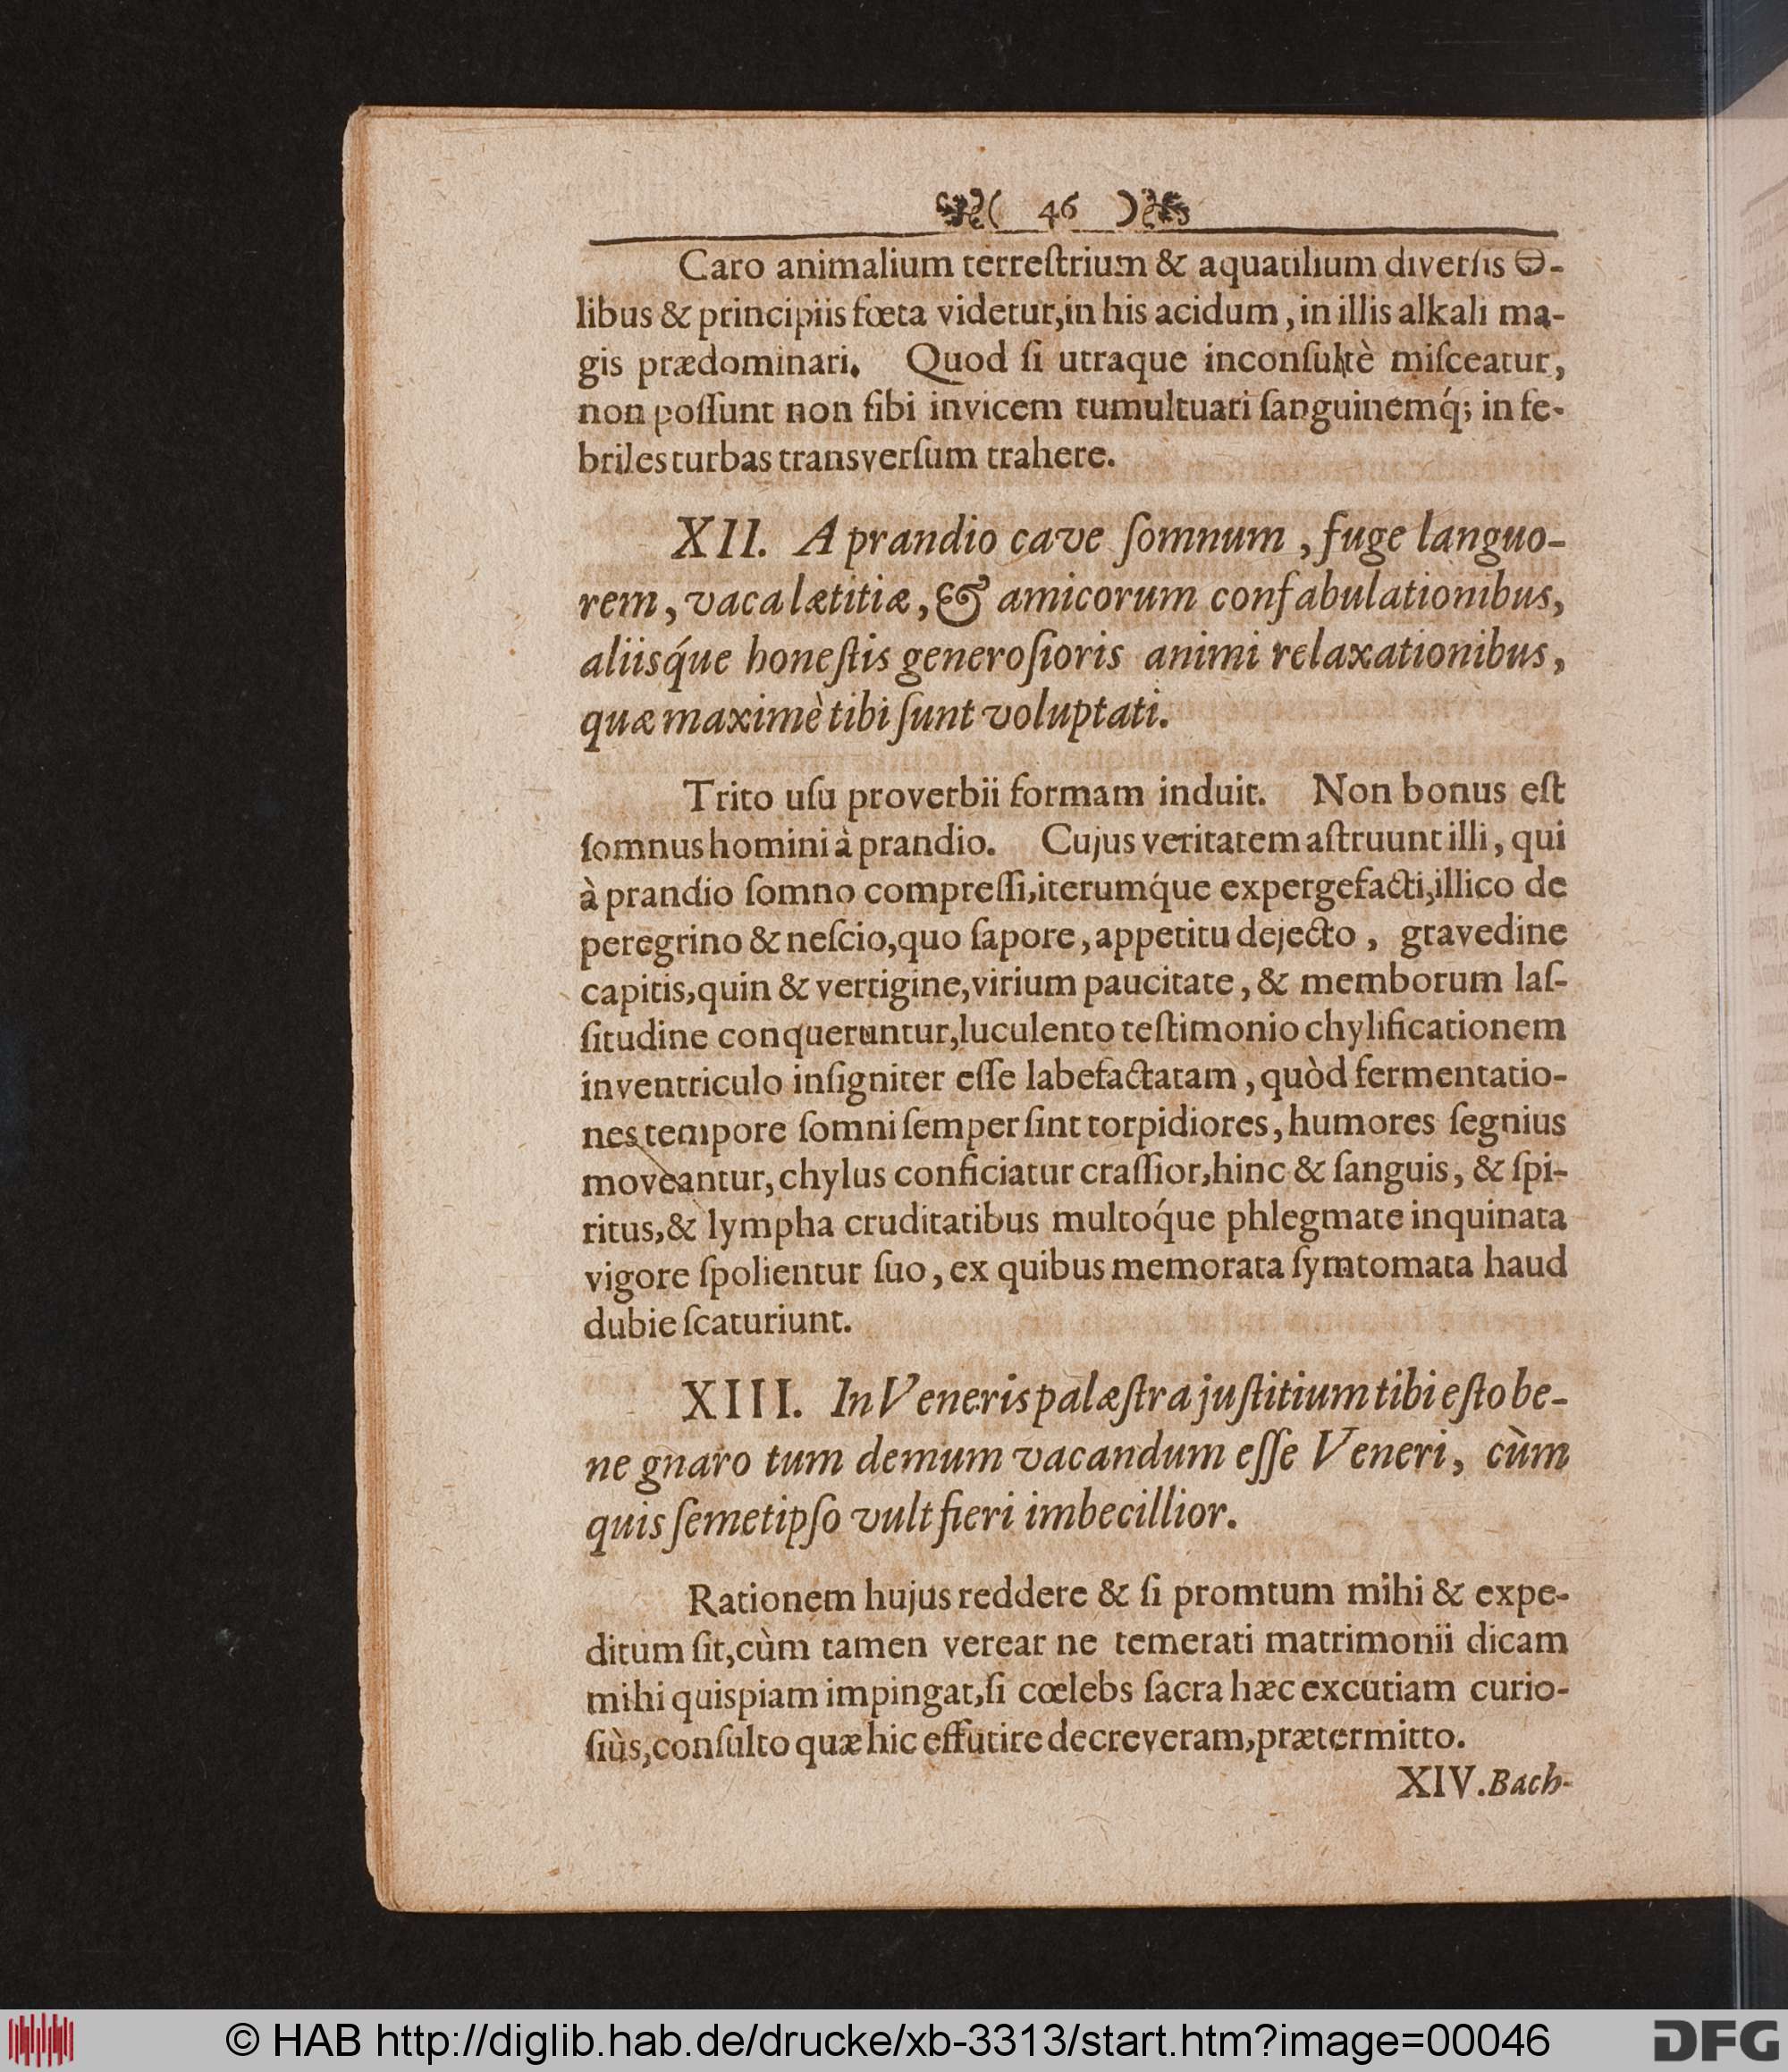 ( 46 )
Caro animalium terreſtrium & aquatilium diverſis 🜔-
libus & principiis fœta videtur,in his acidum, in illis alkali ma-
gis prædominari. Quod ſi utraque inconſultè miſceatur,
non poſſunt non ſibi invicem tumultuari ſanguinemq́; in fe-
briles turbas transverſum trahere.
XII. A prandio cave ſomnum, fuge languo-
rem, vaca lætitiæ, & amicorum confabulationibus,
aliisq́ue honeſtis generoſioris animi relaxationibus,
quæ maximè tibi ſunt voluptati.
Trito uſu proverbii formam induit. Non bonus eſt
ſomnus homini à prandio. Cujus veritatem aſtruunt illi, qui
à prandio ſomno compreſſi,iterumq́ue expergefacti,illico de
peregrino & neſcio,quo ſapore, appetitu dejecto, gravedine
capitis,quin & vertigine,virium paucitate, & memborum laſ-
ſitudine conqueruntur,luculento teſtimonio chylificationem
in ventriculo inſigniter eſſe labefactatam, quòd fermentatio-
nes tempore ſomni ſemper ſint torpidiores, humores ſegnius
moveantur, chylus conficiatur craſſior,hinc & ſanguis, & ſpi-
ritus,& lympha cruditatibus multoq́ue phlegmate inquinata
vigore ſpolientur ſuo, ex quibus memorata ſymtomata haud
dubie ſcaturiunt.
XIII. In Veneris palæſtra juſtitium tibi eſto be-
ne gnaro tum demum vacandum eſſe Veneri, cùm
quis ſemetipſo vult fieri imbecillior.
Rationem hujus reddere & ſi promtum mihi & expe-
ditum ſit,cùm tamen verear ne temerati matrimonii dicam
mihi quispiam impingat,ſi cœlebs ſacra hæc excutiam curio-
ſiùs,conſulto quæ hic effutire decreveram,prætermitto.
XIV. Bach-
© HAB http://diglib.hab.de/drucke/xb-3313/start.htm?image=00046
DFG